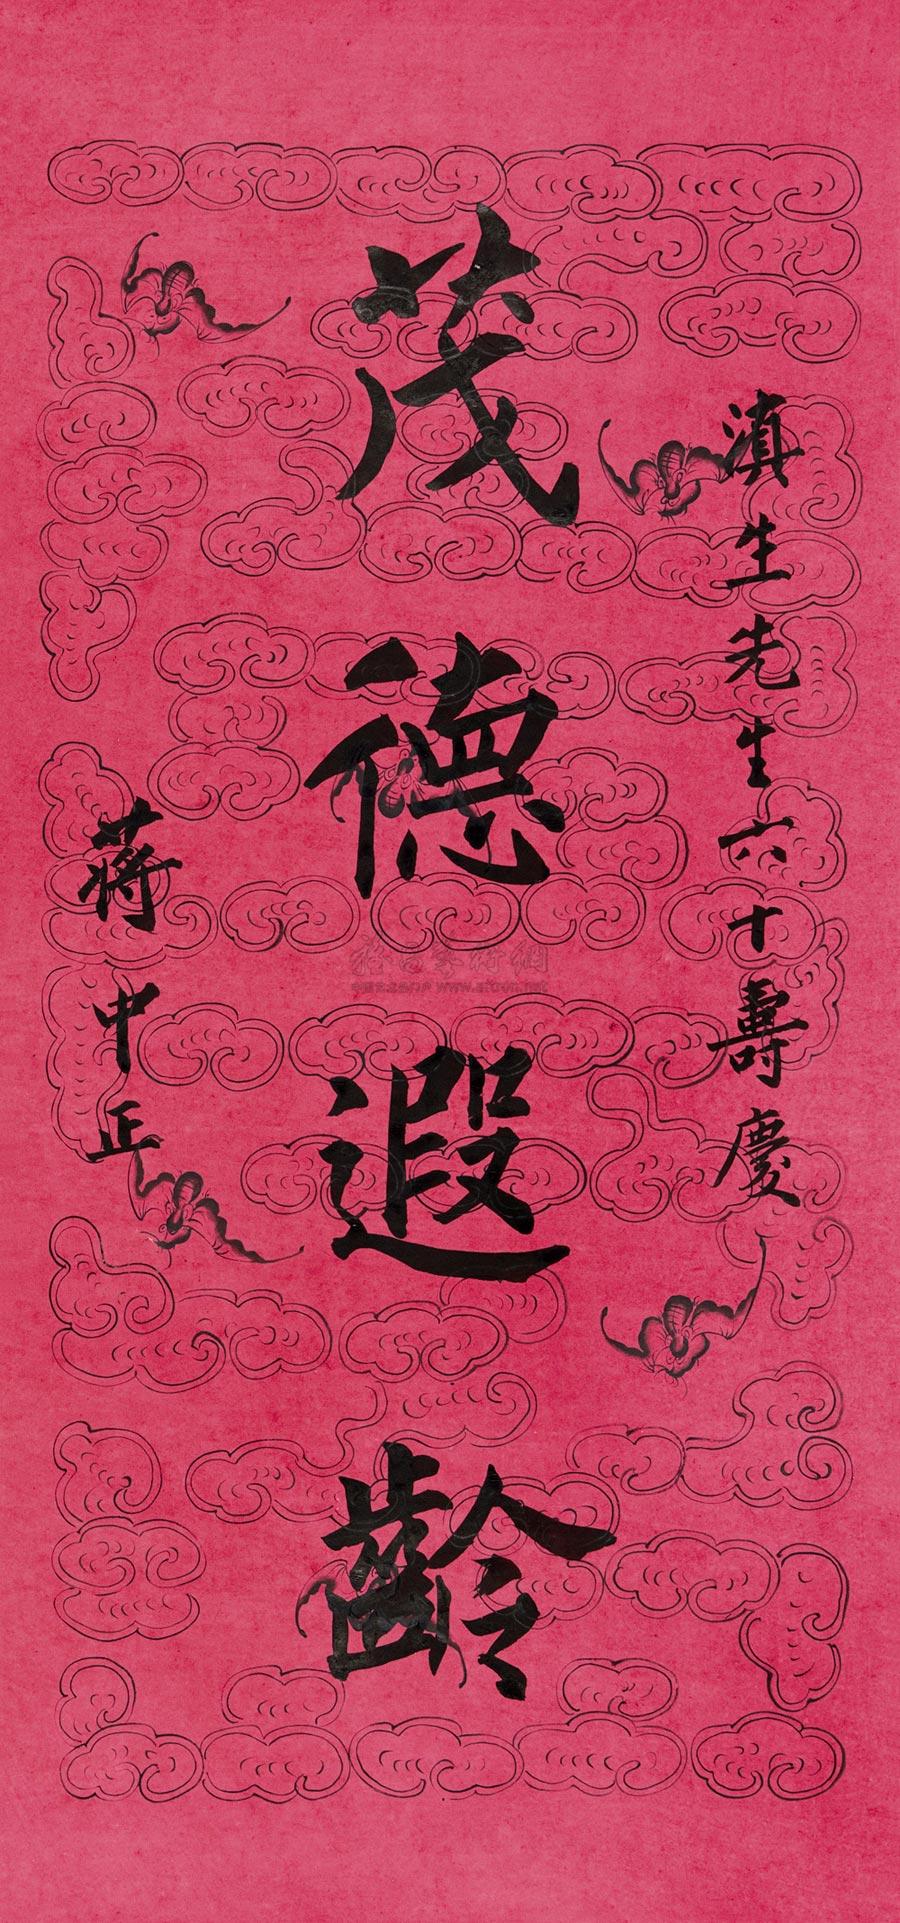 滇生先生六十壽慶
茂德遐齡
蔣中正
www.artron.net